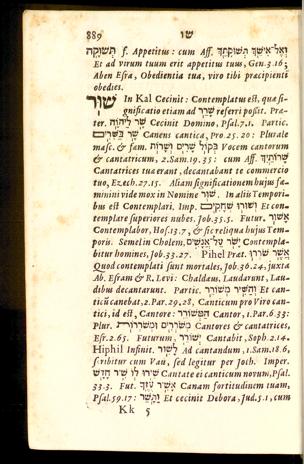 889 שו
תְּשׁוּקָה f. Appetitus: cum Aff. וְאֶל־אִישֵׁךְ תְּשׁוּקָתֵךְ
Et ad virum tuum erit appetitus tuus, Gen. 3. 16;
Aben Esra, Obedientia tua, viro tibi præcipienti
obedies.
שׁוּר In Kal Cecinit: Contemplatus est, quæ si-
gnificatio etiam ad referri possit. Præ-
ter. שָׁר לַיהוָֹה Cecinit Domino, Psal. 7. 1. Partic.
שָׁר בַּשִּׁרִים Canens cantica, Pro. 25. 20: Plurale
masc. & fam. בְּקוֹל שָׁרִים וְשָׁרוֹת Vocem cantorum
& cantatricum, 2. Sam. 19. 35: cum Aff. שָׁרוֹתַיִךְ
Cantatrices tuæ erant, decantabant te commercio
tuo, Ezech. 27. 15. Aliam significationem hujus fæ-
minini vide mox in Nomine שׁוּר. In aliis Tempori-
bus est Contemplari. Imp. וְשׁוּר שְׁחָקִים Et con-
templare superiores nubes. Job. 35. 5. Futur. אָשׁוּר
Contemplabor, Hos. 13. 7, & sic reliqua hujus Tem-
poris. Semel in Cholem, יָשֹׁר עַל־אֲנָשִׁים Contempla-
bitur homines, Job. 33. 27. Pihel Præt. אֲשֶׁר שֹׁרְרוּ
Quod contemplati sunt mortales, Job. 36. 24. juxta
Ab. Esram & R. Levi: Chaldæus, Laudarunt, Lau-
dibus decantarunt. Partic. וְהַשִּׁיר מְשׁוֹרֵר Et can-
ticũ canebat, 2. Par. 29. 28, Canticum pro Viro can-
tici, id est, Cantore: הַמְשׁוֹרֵר Cantor, 1. Par. 6. 33:
Plur. מְשֹׁרְרִים וּמְשֹׁרְרוֹת Cantores & cantatrices,
Esr. 2. 65. Futurum, יְשׁוֹרֵר Cantabit, Soph. 2. 14.
Hiphil Infinit. לָשׁוּר Ad cantandum, 1. Sam. 18. 6,
scribitur cum Vau, sed legitur per Joth. Imper.
שִׁירוּ לוֹ שִׁיר חָדָשׁ Cantate ei canticum novum, Psal.
33. 3. Fut. אָשִׁיר עֻזֶּךָ Canam fortitudinem tuam,
Psal. 59. 17: וַתָּשַׁר Et cecinit Debora, Jud. 5. 1, cum
Kk 5